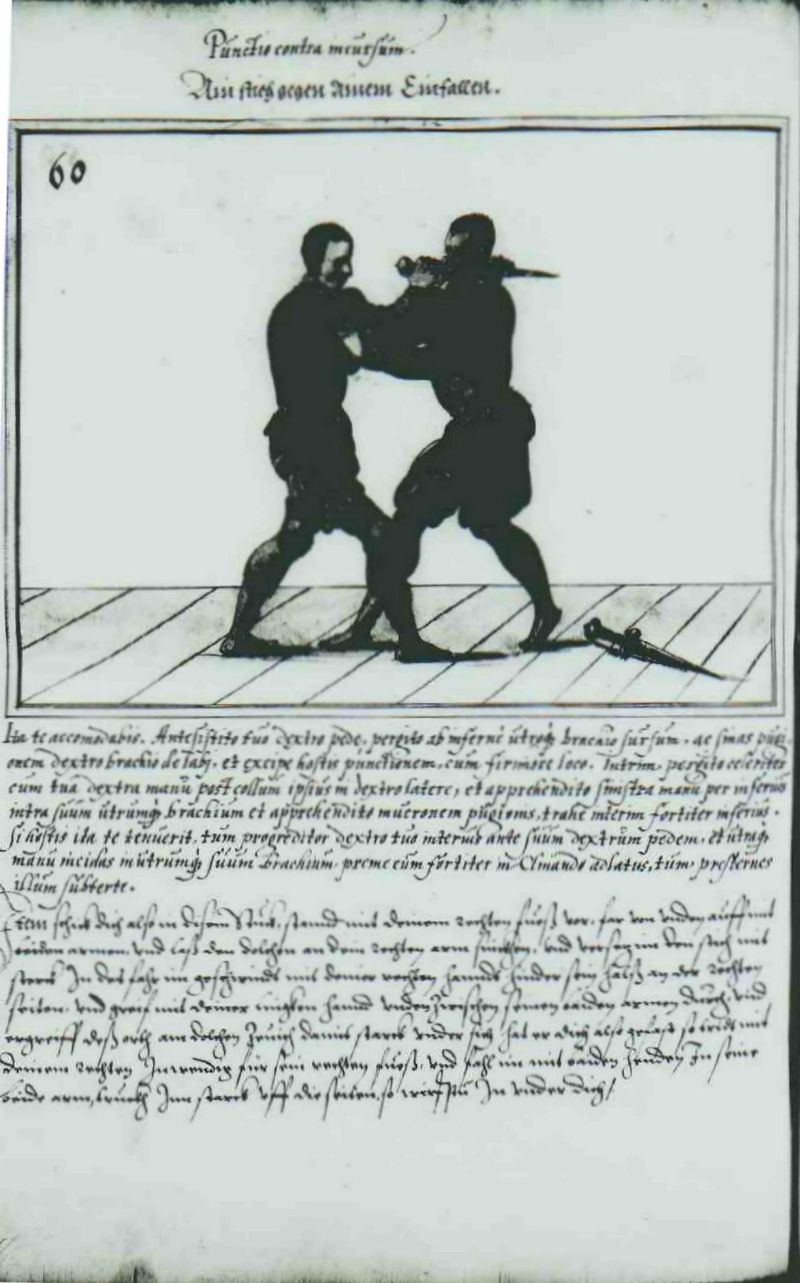 Punctio contra incursum.
Ain stich gegen ainem Einfallen.
60
Ita te accomodabis. Antesistito tuo dextro pede, pergito ab inferne utroq; brachio sursum, ac sinas pugi-
onem dextro brachio delabj, et excipe hostis punctionem, eum firmiore loco. Interim pergito celeriter
cum tua dextra manu post collum ipsius in dextro latere, et apprehendito sinistra manu per inferius
intra suum utrumq; brachium et apprehendito mucronem pugionis, trahe interim fortiter inferius.
Si hostis ita te tenuerit, tum progreditor dextro tuo interius ante suum dextrum pedem, et utraq;
manu incidas in utrumq; suum Brachium preme eum fortiter in ad latus, tum, prosternes
illum subter te.
Item schick dich also in disem Stuck, stannd mit deinem rechten fuoß vor, far von unden auff mit
beiden armen, und laß den dolchen an dein rechten arm und versetz im den stich mit
sterck In des fahr im geschwindt mit deiner rechten hanndt hinder sein halß an der rechten
seiten, und greif mit deiner lingken hannd unden zwischen seinen baiden armen durch, und
ergreiff deß orth am dolchen Zeuch damit starck under sich hat er dich also gefast so tridt mit
deinem rechten Inwendig für sein rechten fuoß, und fahl im mit baiden henden In seine
beide arm, truckh Inn starck uff die seiten, so wirfstu In under dich /